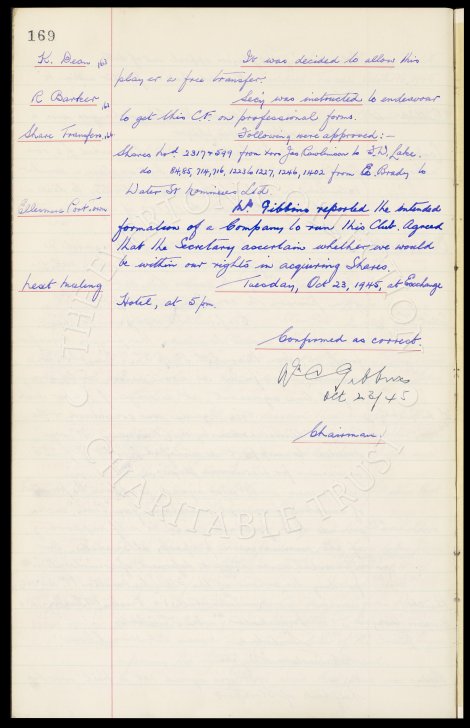 169
K. Dean, 163 It was decided to allow this
player a free transfer.
R Barker, 163 Sec'y was instructed to endeavour
to get this C.F. on professional forms.
Share Transfers, Following were approved:—
Shares Nos. 2317 & 599 from Jas Rawlinson to Lake.
do 84,85, 714,716, 1223 1227, 1246, 1402 from E. Brady to
Water St Nominees Ltd.
Ellesmere Port Town Mr Gibbins reported the intended
formation of a Company to run this Club. Agreed
that the Secretary ascertain whether we would
be within our rights in acquiring Shares.
Next Meeting Tuesday, Oct 23, 1945, at Exchange
Hotel, at 5 pm.
Confirmed as correct.
Wm C Gibbins
Oct 23/45
Chairman.
THE EVERTON COLLECTION
CHARITABLE TRUST